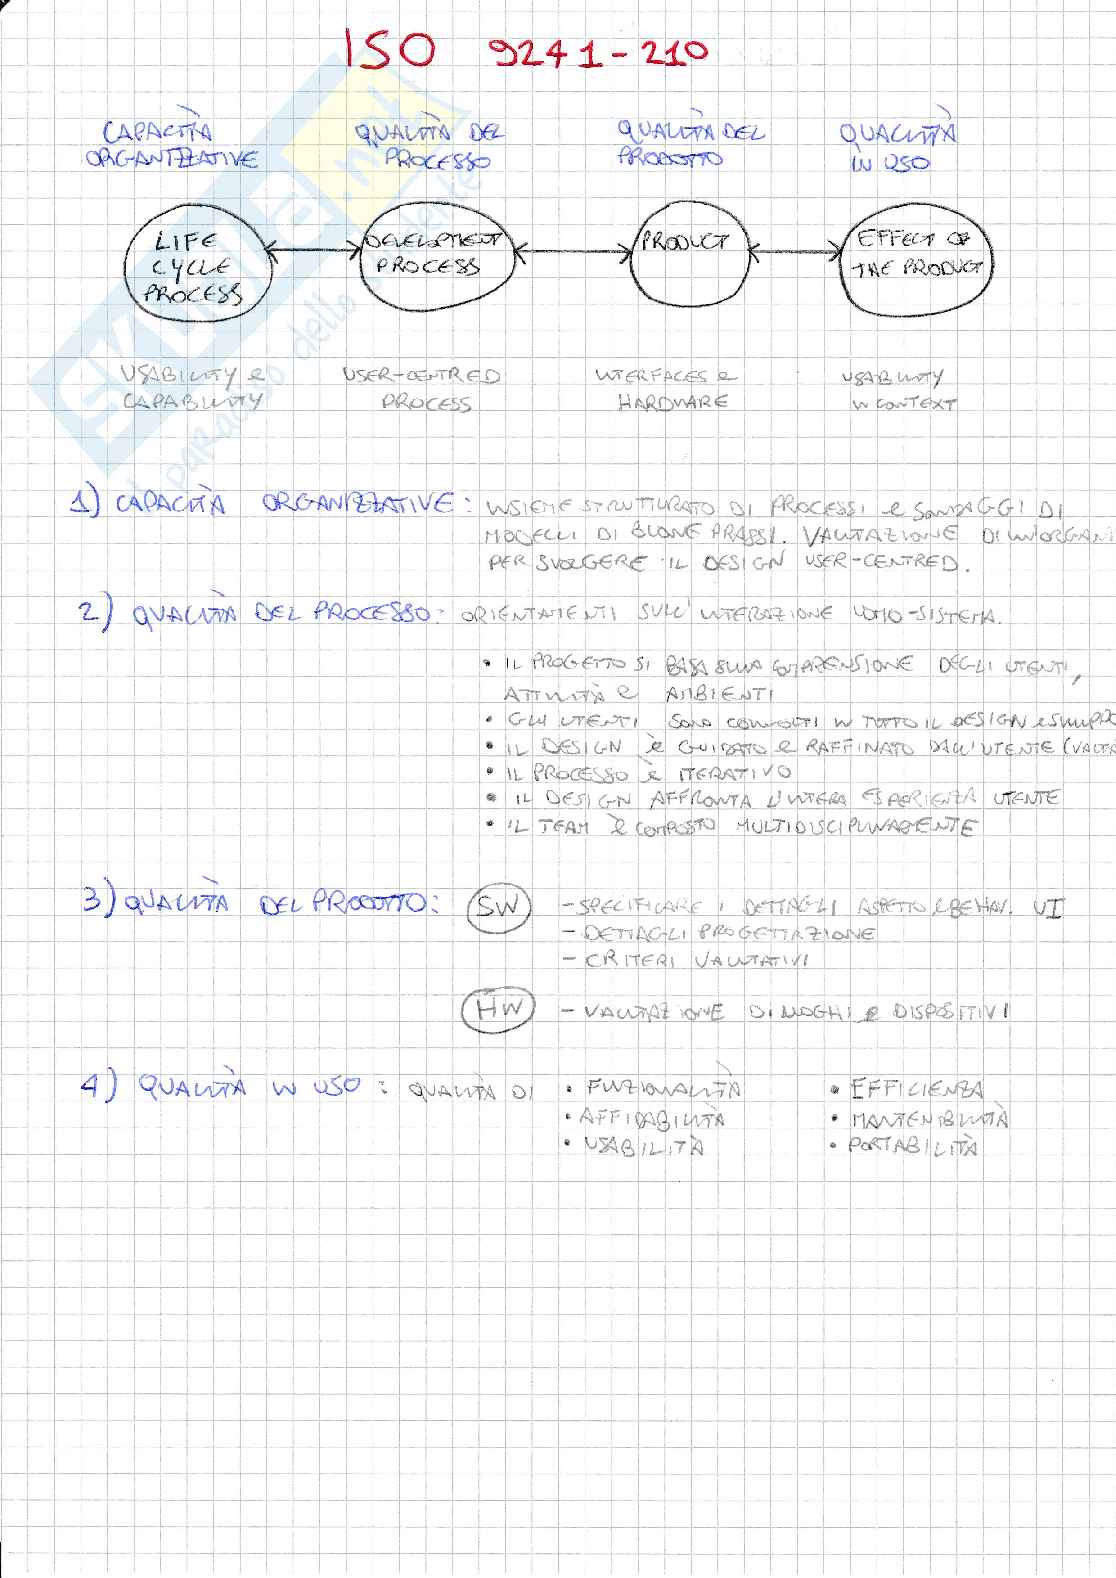 ISO 9241-210
CAPACITÀ ORGANIZZATIVE
QUALITÀ DEL PROCESSO
QUALITÀ DEL PRODOTTO
QUALITÀ IN USO
LIFE CYCLE PROCESS
DEVELOPMENT PROCESS
PRODUCT
EFFECT OF THE PRODUCT
USABILITY e CAPABILITY
USER-CENTRED PROCESS
INTERFACES e HARDWARE
USABILITY IN CONTEXT
1) CAPACITÀ ORGANIZZATIVE: INSIEME STRUTTURATO DI PROCESSI e SONDAGGI DI
MODELLI DI BUONE PRASSI. VALUTAZIONE DI UN'ORGANI
PER SVOLGERE IL DESIGN USER-CENTRED.
2) QUALITÀ DEL PROCESSO: ORIENTAMENTI SULL'INTERAZIONE UOMO-SISTEMA.
• IL PROGETTO SI BASA SULLA COMPRENSIONE DEGLI UTENTI,
ATTIVITÀ e AMBIENTI
• GLI UTENTI SONO COINVOLTI IN TUTTO IL DESIGN e SVILUPPO
• IL DESIGN È GUIDATO e RAFFINATO DALL'UTENTE (VALUTA
• IL PROCESSO È ITERATIVO
• IL DESIGN AFFRONTA L'INTERA ESPERIENZA UTENTE
• IL TEAM È COMPOSTO MULTIDISCIPLINARMENTE
3) QUALITÀ DEL PRODOTTO: SW - SPECIFICARE I DETTAGLI ASPETTO e BEHAV. UI
- DETTAGLI PROGETTAZIONE
- CRITERI VALUTATIVI
HW - VALUTAZIONE DI LUOGHI e DISPOSITIVI
4) QUALITÀ IN USO: QUALITÀ DI • FUNZIONALITÀ • EFFICIENZA
• AFFIDABILITÀ • MANTENIBILITÀ
• USABILITÀ • PORTABILITÀ